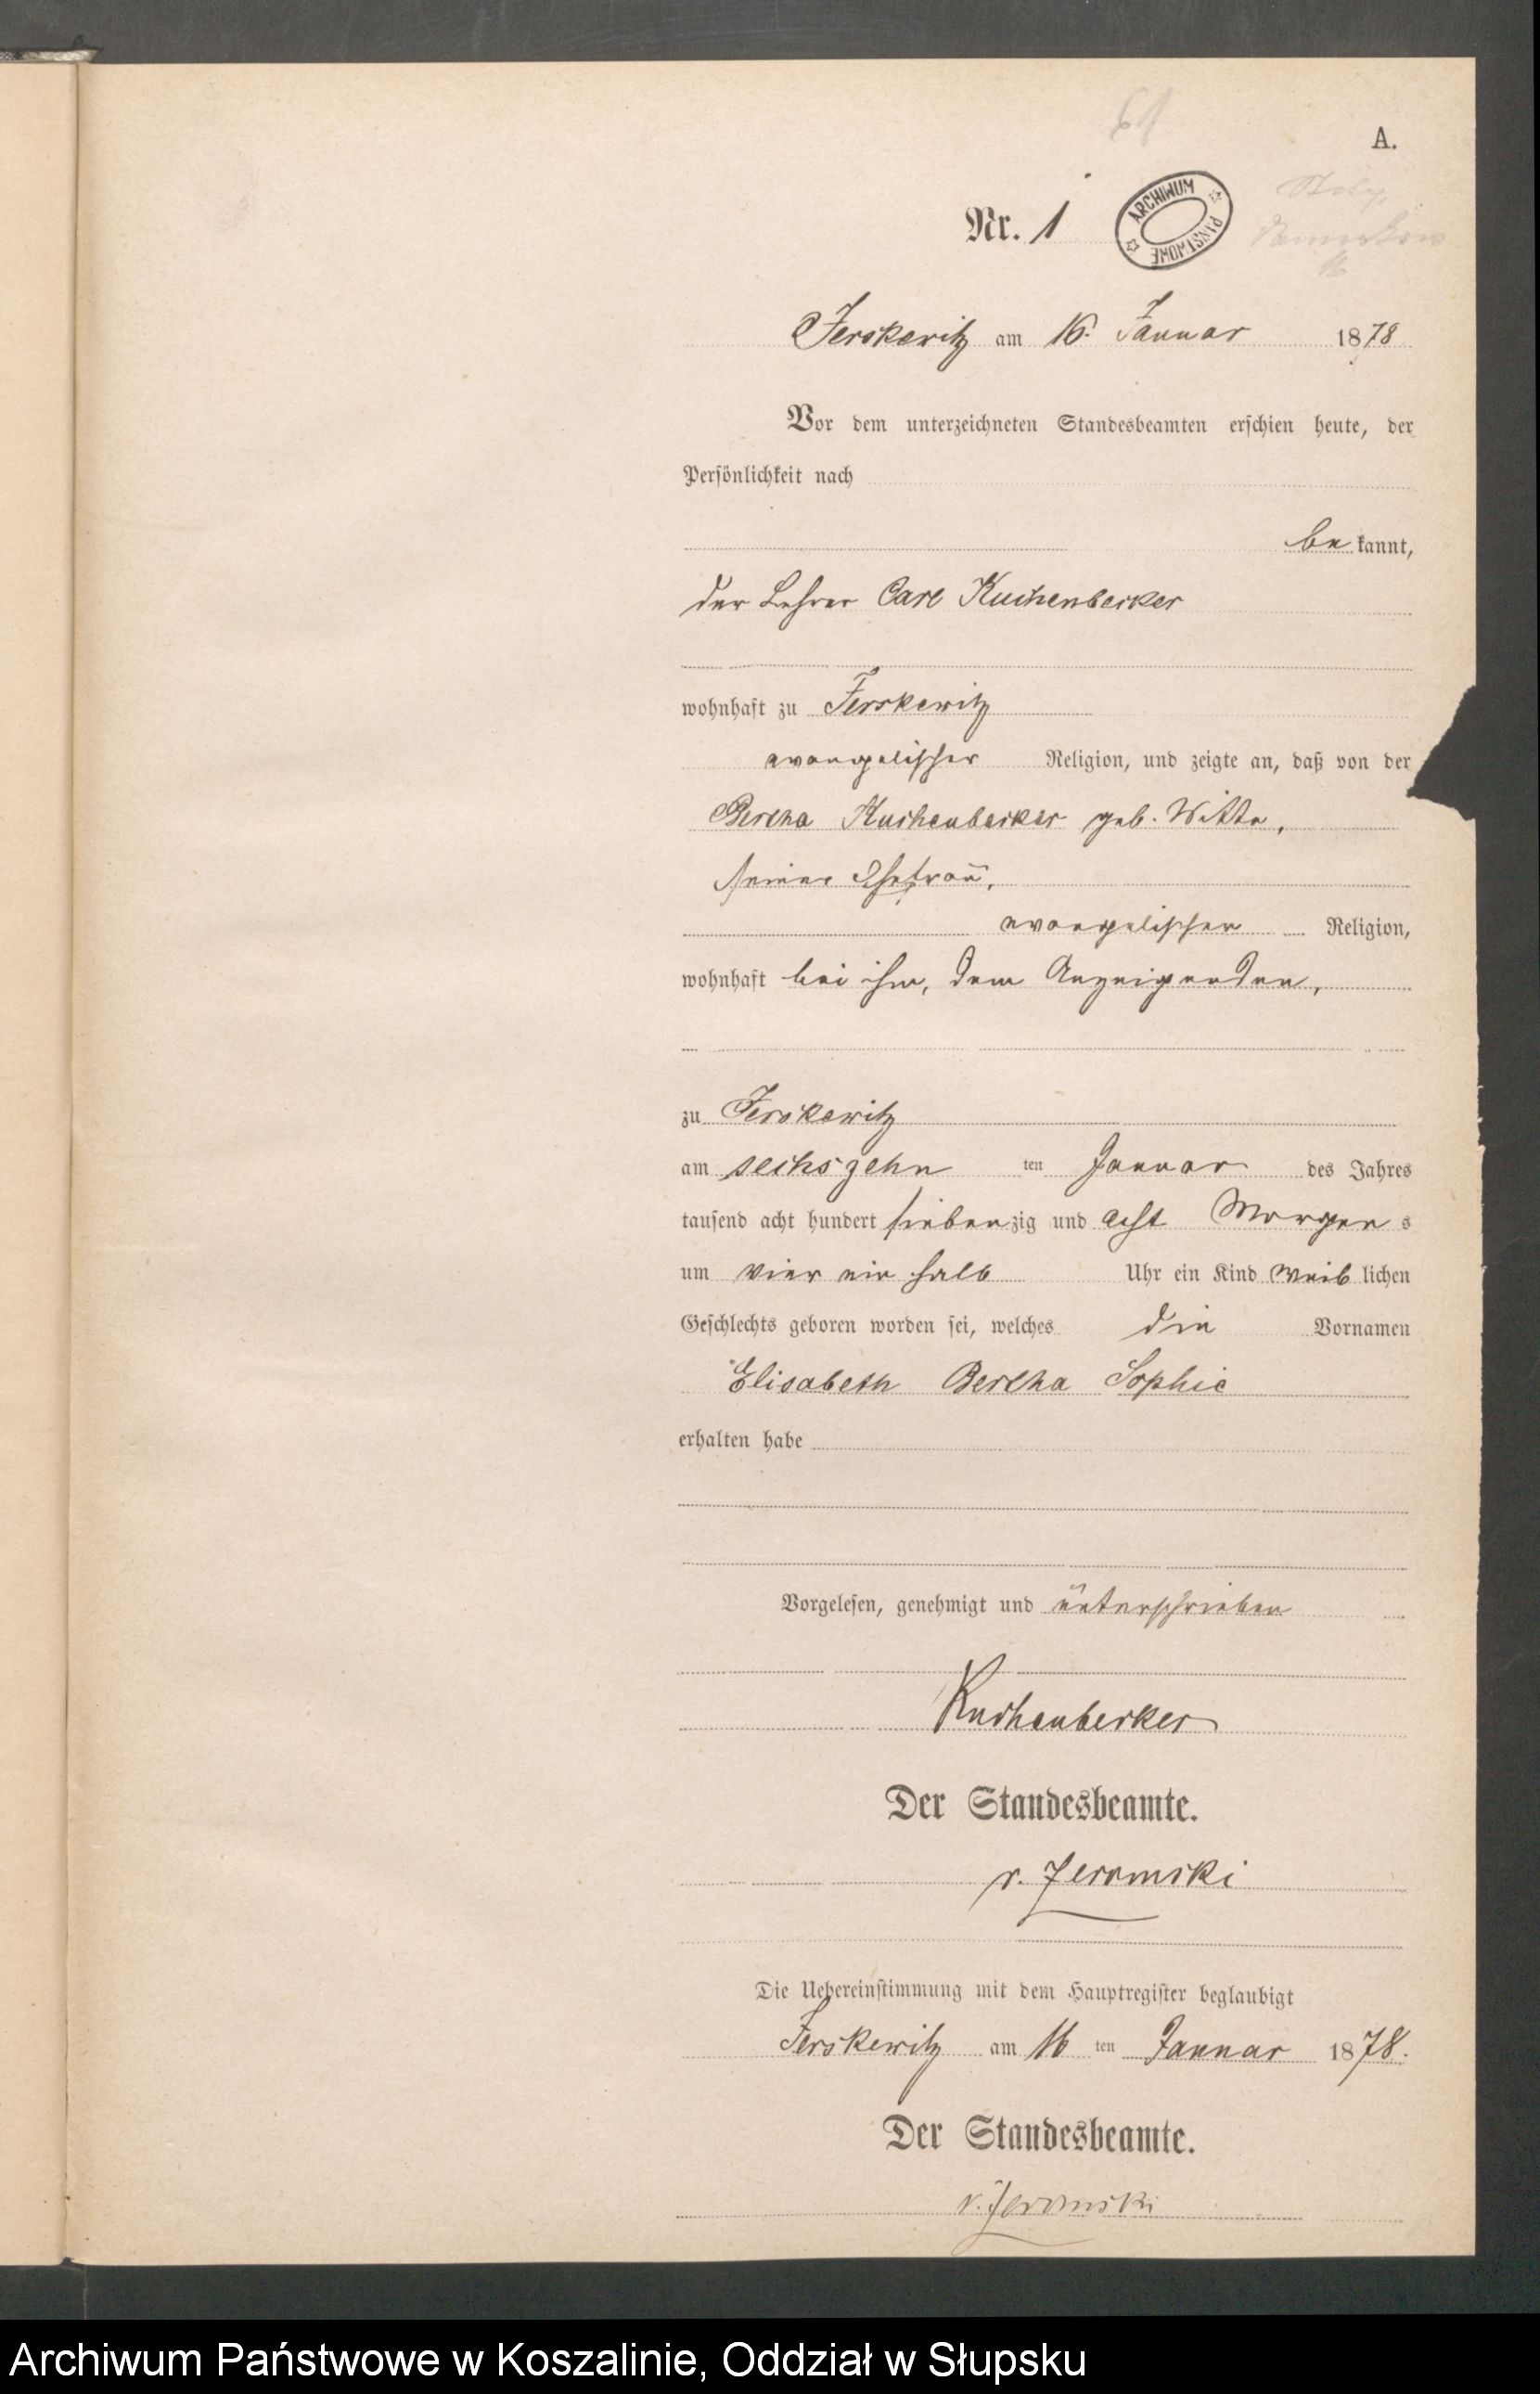 A.
Nr. 1
ARCHIWUM PAŃSTWOWE
Jerskewitz am 16. Januar 1878
Vor dem unterzeichneten Standesbeamten erschien heute, der
Persönlichkeit nach
bekannt,
der Lehrer Carl Kuchenbecker
wohnhaft zu Jerskewitz
evangelischer Religion, und zeigte an, daß von der
Bertha Kuchenbecker geb. Witte,
seiner Ehefrau,
evangelischer Religion,
wohnhaft bei ihm, dem Anzeigenden,
zu Jerskewitz
am sechszehn ten Januar des Jahres
tausend acht hundert siebenzig und acht Morgens
um vier ein halb Uhr ein Kind weiblichen
Geschlechts geboren worden sei, welches die Vornamen
Elisabeth Bertha Sophie
erhalten habe
Vorgelesen, genehmigt und unterschrieben
Kuchenbecker
Der Standesbeamte.
v. Zeromski
Die Uebereinstimmung mit dem Hauptregister beglaubigt
Jerskewitz am 16 ten Januar 1878.
Der Standesbeamte.
v. Zeromski
Archiwum Państwowe w Koszalinie, Oddział w Słupsku